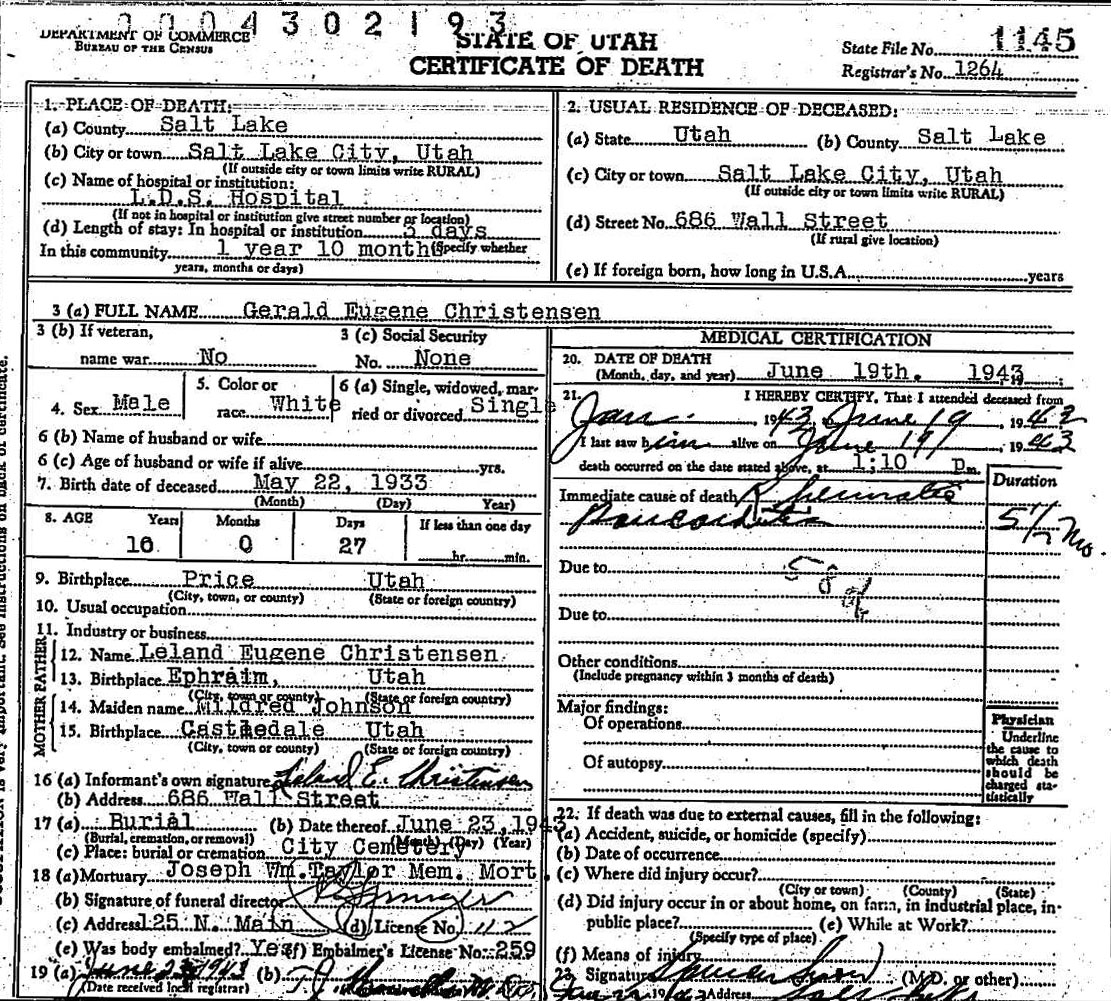 0004302193
DEPARTMENT OF COMMERCE
BUREAU OF THE CENSUS
STATE OF UTAH
CERTIFICATE OF DEATH
State File No. 1145
Registrar's No. 1264
1. PLACE OF DEATH:
(a) County Salt Lake
(b) City or town Salt Lake City, Utah
(If outside city or town limits write RURAL)
(c) Name of hospital or institution:
L.D.S. Hospital
(If not in hospital or institution give street number or location)
(d) Length of stay: In hospital or institution days
In this community 1 year 10 month (Specify whether
years, months or days)
2. USUAL RESIDENCE OF DECEASED:
(a) State Utah (b) County Salt Lake
(c) City or town Salt Lake City, Utah
(If outside city or town limits write RURAL)
(d) Street No. 686 Wall Street
(If rural give location)
(e) If foreign born, how long in U.S.A. years
3 (a) FULL NAME Gerald Eugene Christensen
3 (b) If veteran,
name war No
3 (c) Social Security
No. None
4. Sex Male
5. Color or
race White
6 (a) Single, widowed, mar-
ried or divorced Single
6 (b) Name of husband or wife
6 (c) Age of husband or wife if alive yrs.
7. Birth date of deceased May 22, 1933
(Month) (Day) Year)
8. AGE Years Months Days If less than one day
10 0 27 hr. min.
9. Birthplace Price Utah
(City, town, or county) (State or foreign country)
10. Usual occupation
11. Industry or business
FATHER
12. Name Leland Eugene Christensen
13. Birthplace Ephraim, Utah
(City, town or county) (State or foreign country)
MOTHER
14. Maiden name Mildred Johnson
15. Birthplace Castledale Utah
(City, town or county) (State or foreign country)
16 (a) Informant's own signature Leland E. Christensen
(b) Address 686 Wall Street
17 (a) Burial (b) Date thereof June 23, 1943
(Burial, cremation, or removal) (Month) (Day) (Year)
(c) Place: burial or cremation City Cemetery
18 (a) Mortuary Joseph Wm. Taylor Mem. Mort.
(b) Signature of funeral director
(c) Address 125 N. Main (d) License No. 112
(e) Was body embalmed? Yes (f) Embalmer's License No. 259
19 (a) June 1943 (b)
(Date received local registrar)
MEDICAL CERTIFICATION
20. DATE OF DEATH
(Month, day, and year) June 19th. 1943
21. I HEREBY CERTIFY, That I attended deceased from
Jan 1943, June 19, 1943
I last saw him alive on June 19, 1943
death occurred on the date stated above, at 1:10 P.m.
Duration
Immediate cause of death Rheumatic
Pancarditis 5 Mo.
Due to 58
Due to
Other conditions
(Include pregnancy within 3 months of death)
Major findings:
Of operations
Of autopsy
Physician
Underline
the cause to
which death
should be
charged sta-
tistically
22. If death was due to external causes, fill in the following:
(a) Accident, suicide, or homicide (specify)
(b) Date of occurrence
(c) Where did injury occur?
(City or town) (County) (State)
(d) Did injury occur in or about home, on farm, in industrial place, in-
public place? (e) While at Work?
(Specify type of place)
(f) Means of injury
23. Signature (M.D. or other)
Address Salt